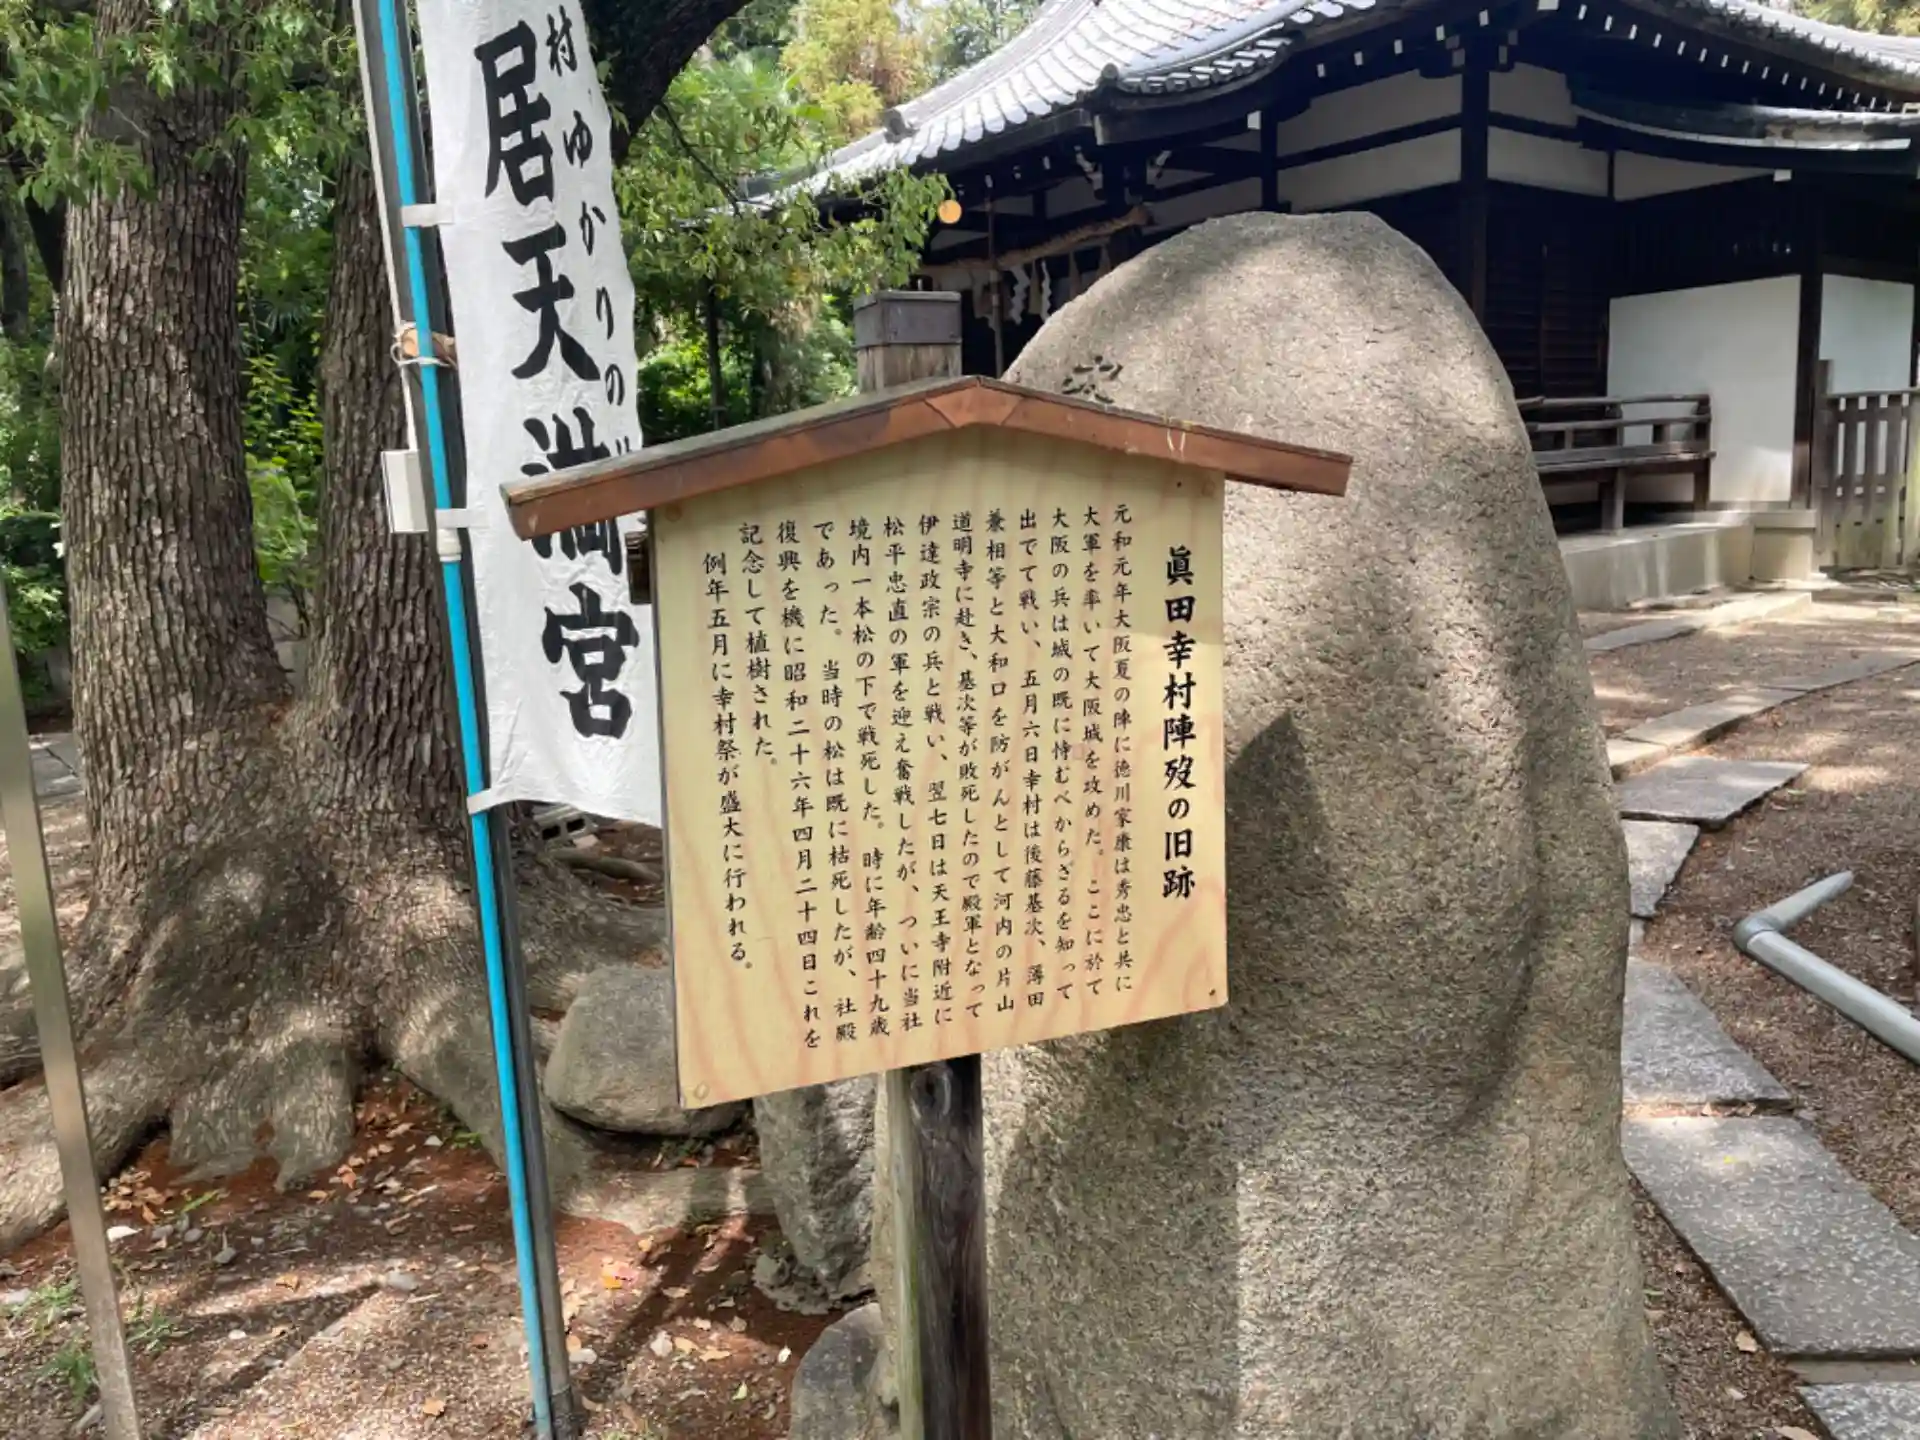 眞田幸村陣歿の旧跡
元和元年大阪夏の陣に徳川家康は秀忠と共に
大軍を率いて大阪城を攻めた。ここに於て
大阪の兵は城の既に恃むべからざるを知って
出でて戦い、五月六日幸村は後藤基次、薄田
兼相等と大和口を防がんとして河内の片山
道明寺に赴き、基次等が敗死したので殿軍となって
伊達政宗の兵と戦い、翌七日は天王寺附近に
松平忠直の軍を迎え奮戦したが、ついに当社
境内一本松の下で戦死した。時に年齢四十九歳
であった。当時の松は既に枯死したが、社殿
復興を機に昭和二十六年四月二十四日これを
記念して植樹された。
例年五月に幸村祭が盛大に行われる。
村ゆかりの
居天満宮